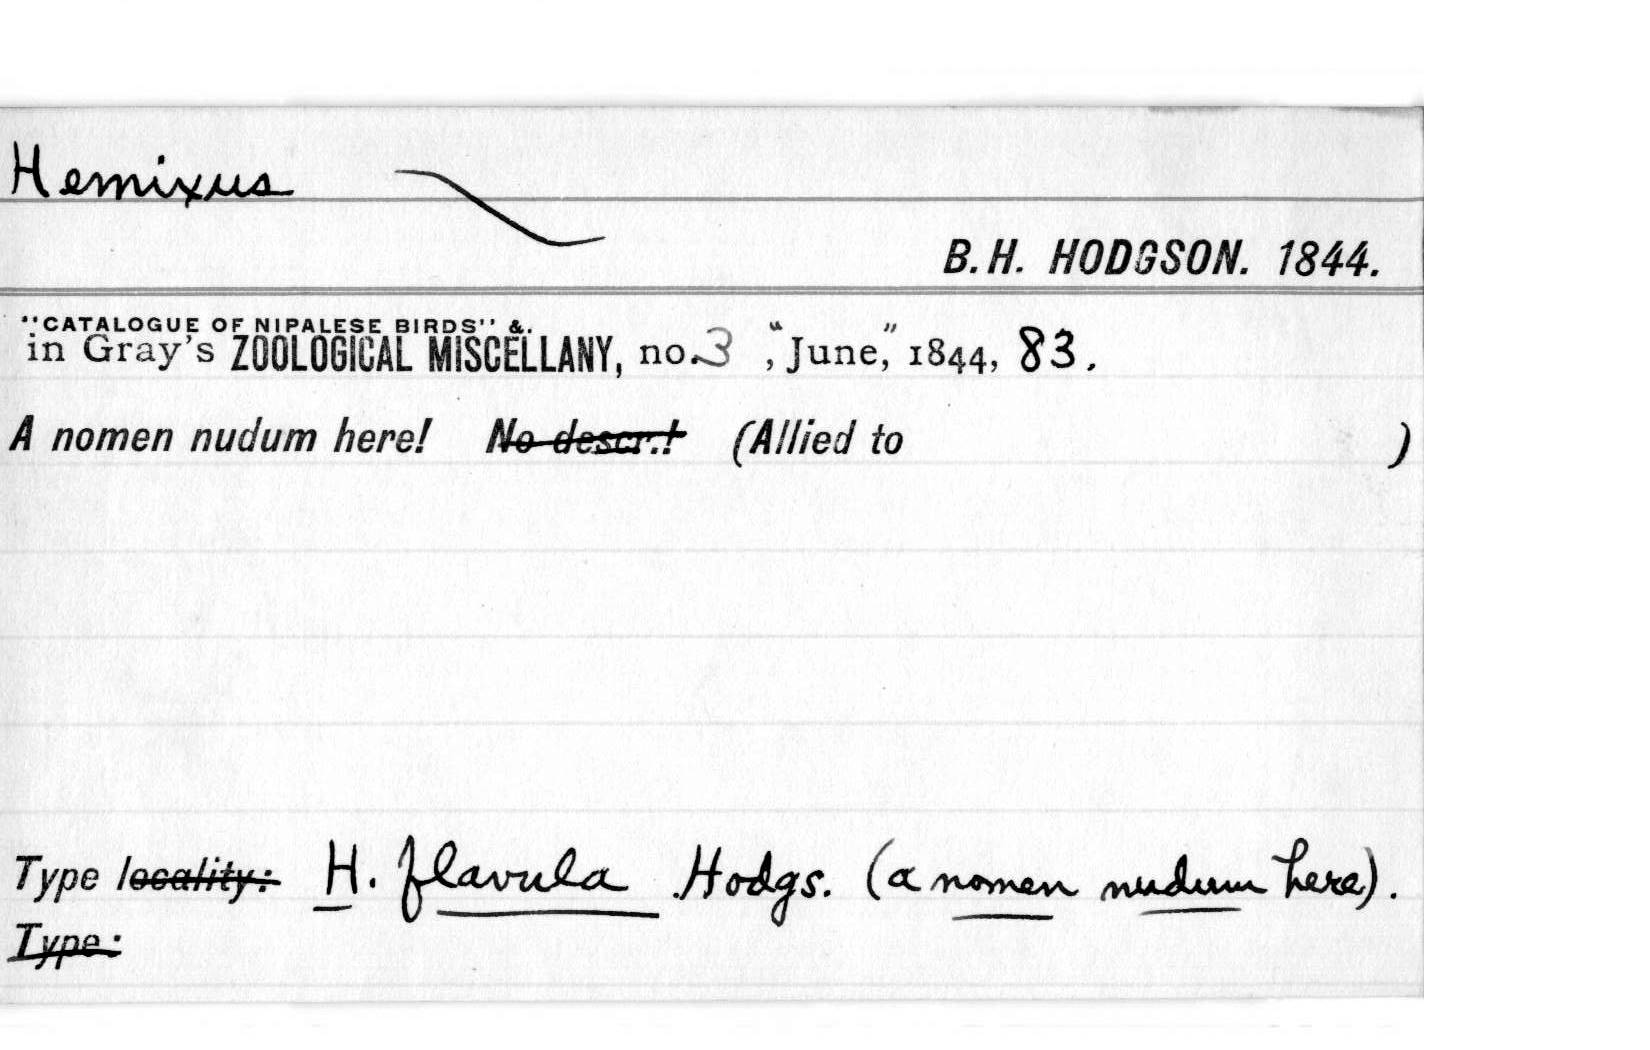 Hemixus
B.H. HODGSON. 1844.
"CATALOGUE OF NIPALESE BIRDS" &.
in Gray's ZOOLOGICAL MISCELLANY, no. 3 , "June," 1844, 83.
A nomen nudum here! No descr.! (Allied to )
Type locality: H. flavula Hodgs. (a nomen nudum here).
Type: